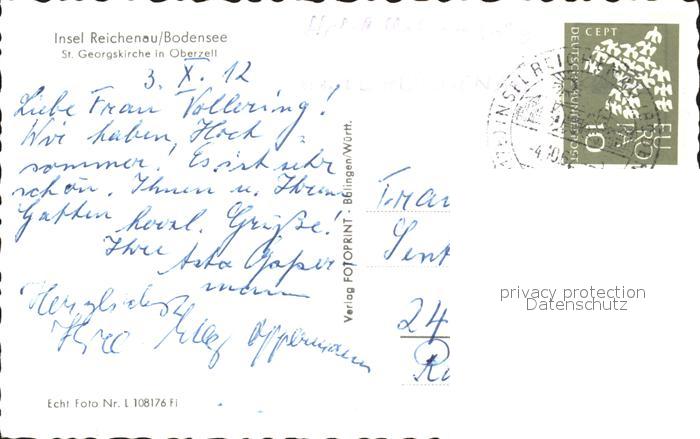 Insel Reichenau/Bodensee
St. Georgskirche in Oberzell
3. X. 12
Liebe Frau Vollering!
Wir haben Hoch-
sommer! Es ist sehr
schön. Ihnen u. Ihrem
Gatten herzl. Grüße!
Ihre Asta
mann
Herzlichst
Ihre Oppermann
Echt Foto Nr. L 108176 Fi
Verlag FOTOPRINT - Bölingen/Württ.
CEPT
DEUTSCHE BUNDESPOST
EUROPA
10
INSEL REICHENAU
-4.10.6
Frau
24
privacy protection
Datenschutz